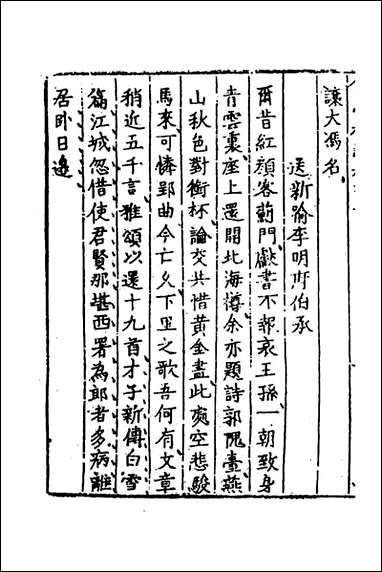 讓大馮名
送新喻李明府伯承
爾昔紅顏客薊門獻書不報哀王孫一朝致身
青雲裏座上還開北海樽余亦題詩郭隗臺燕
山秋色對銜杯論交共惜黄金盡此處空悲駿
馬來可憐郢曲今亡久下里之歌吾何有文章
稍近五千言雅頌以還十九首才子新傳白雪
篇江城忽借使君賢那堪西署為郎者多病離
居卧日邊